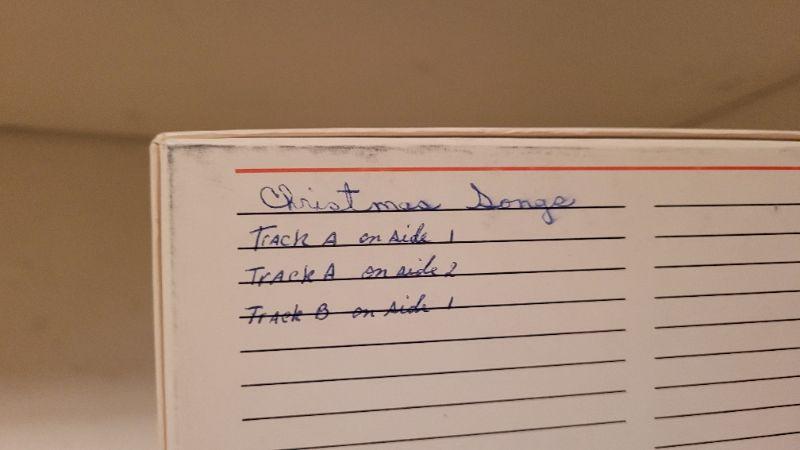 Christmas Songs
Track A on side 1
Track A on side 2
Track B on side 1